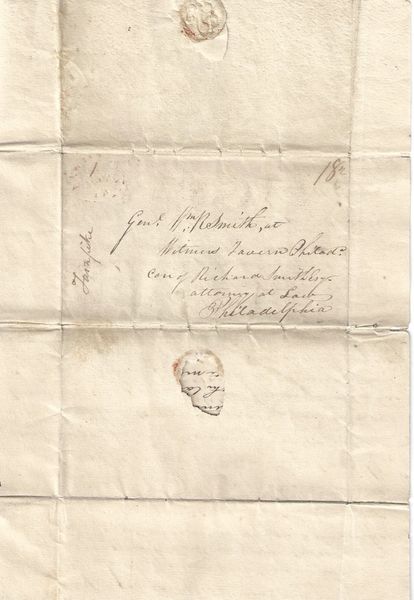 18¾
Genl. Wm R Smith, at
Witmers Tavern Philada.
Care of Richard Smith Esqr.
attorney at Law
Philadelphia